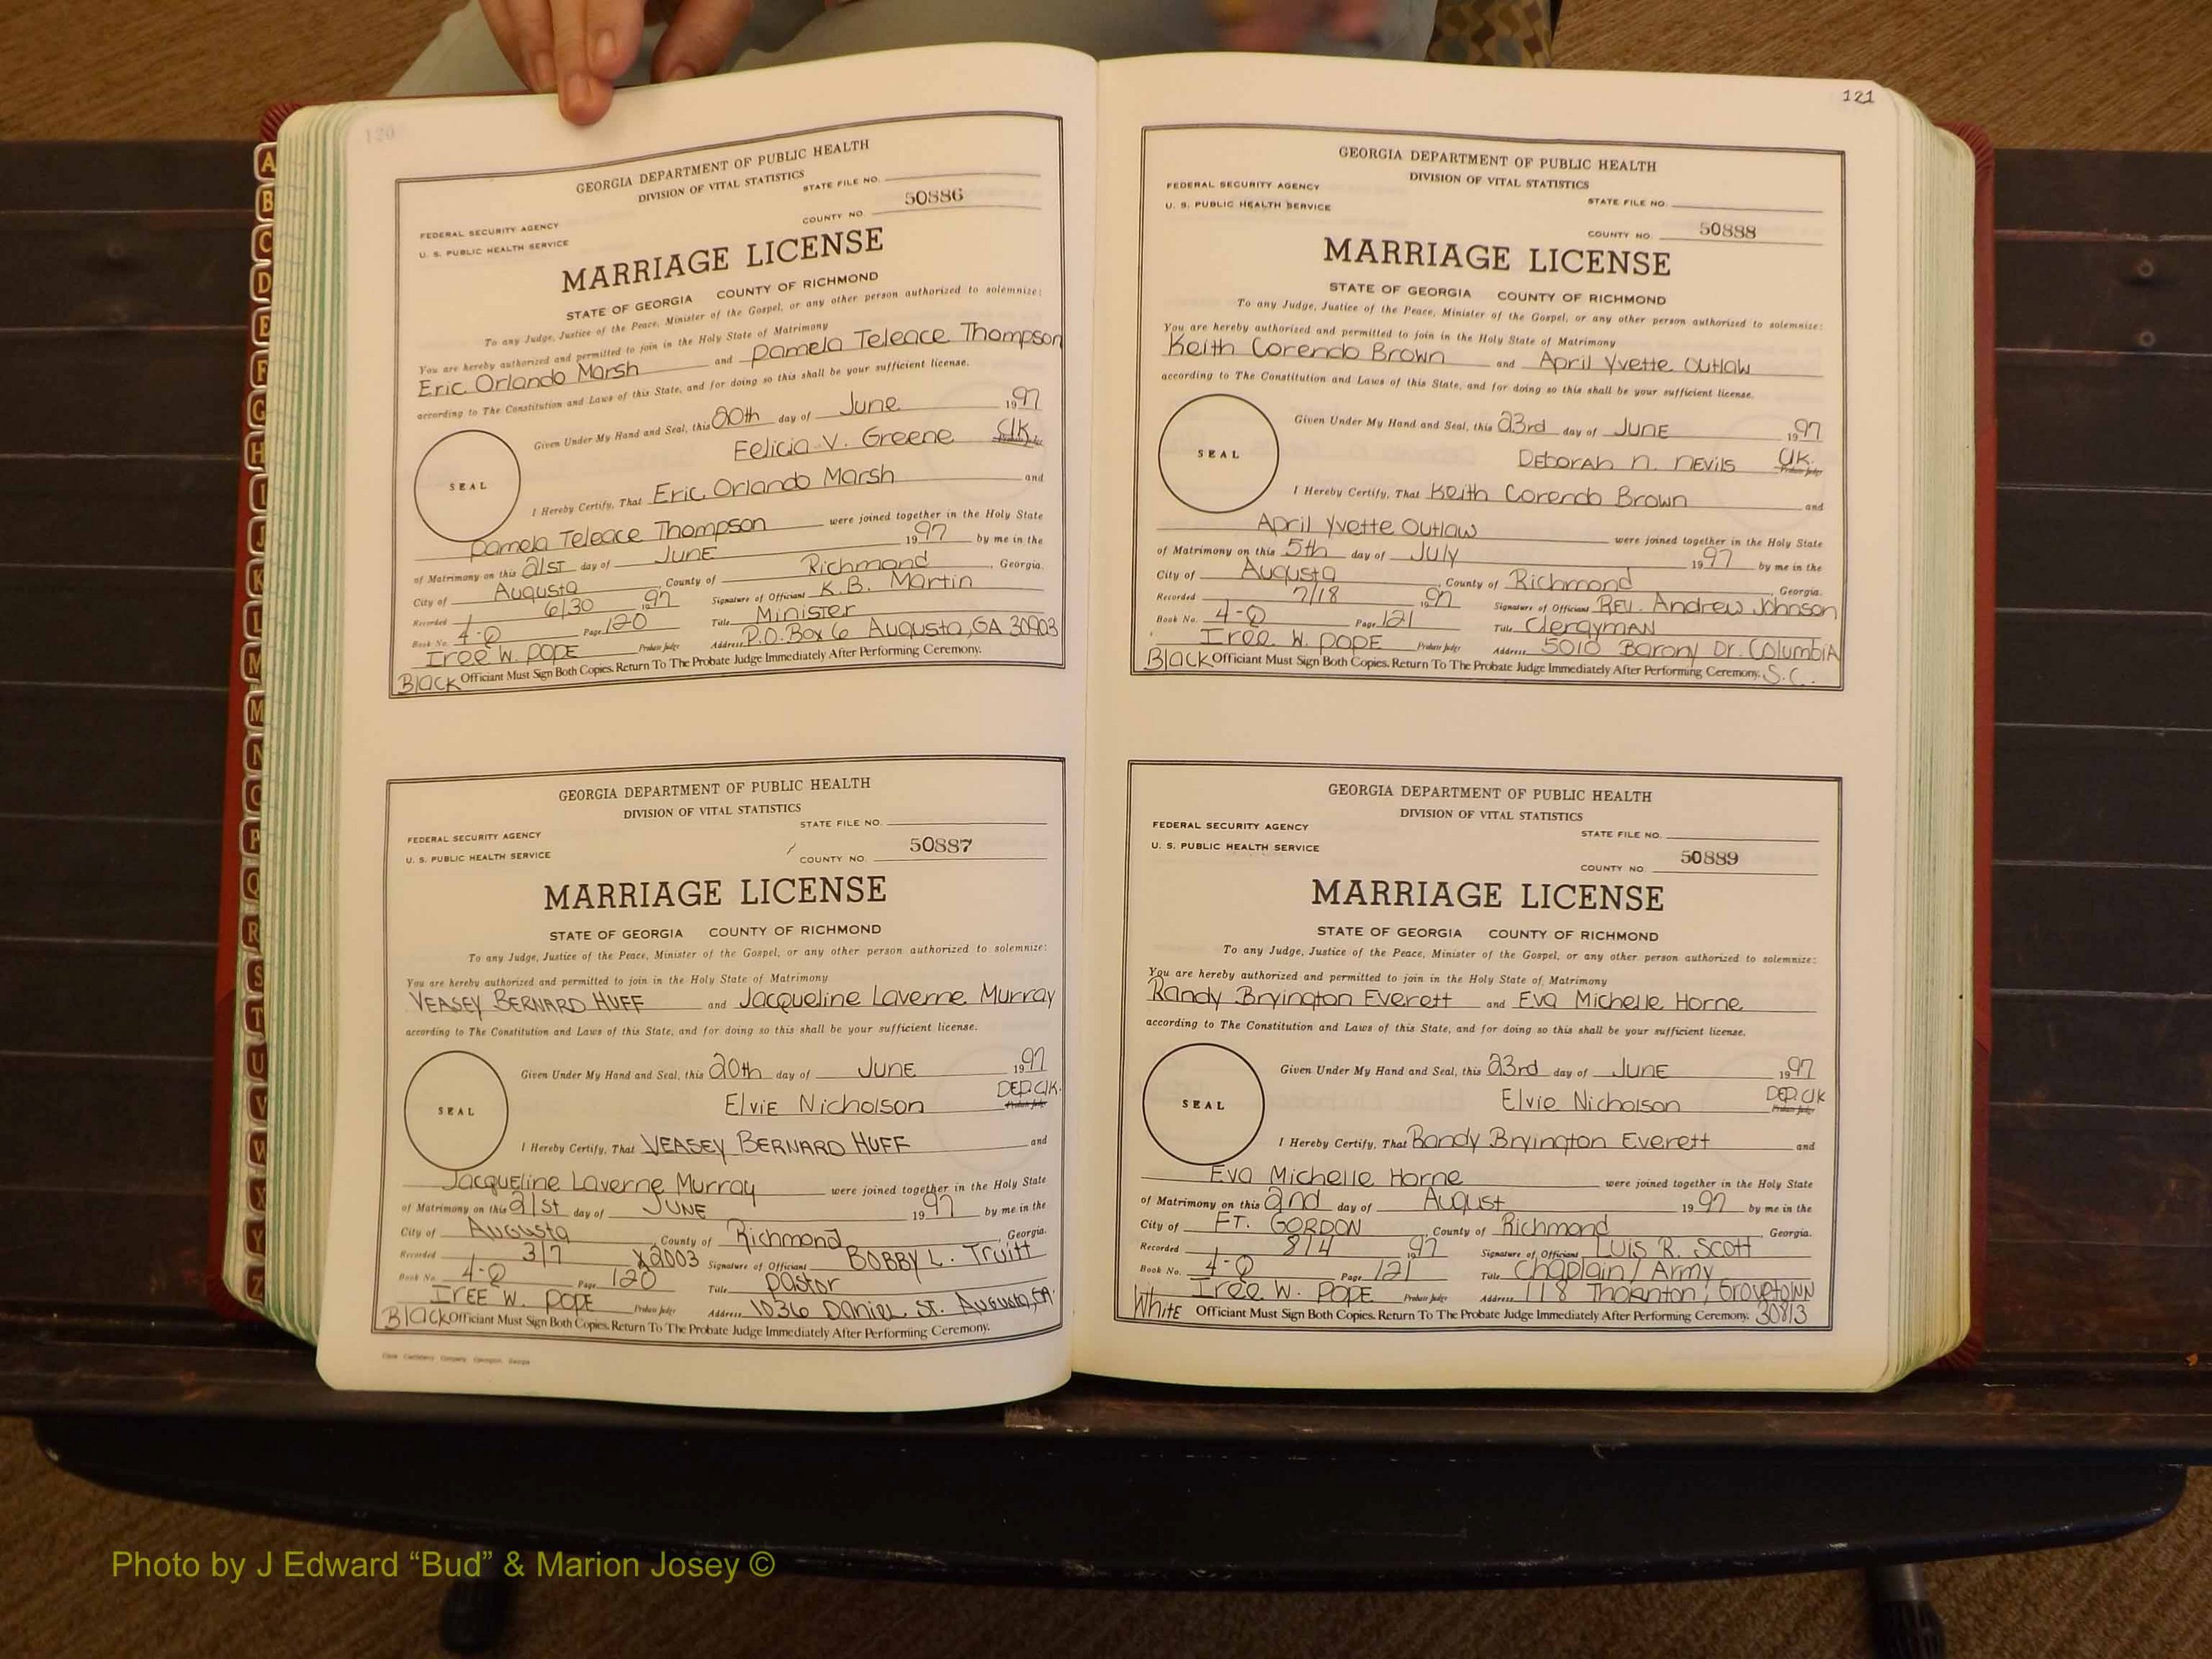 120
GEORGIA DEPARTMENT OF PUBLIC HEALTH
DIVISION OF VITAL STATISTICS
STATE FILE NO.
FEDERAL SECURITY AGENCY
U. S. PUBLIC HEALTH SERVICE
COUNTY NO. 50886
MARRIAGE LICENSE
STATE OF GEORGIA COUNTY OF RICHMOND
To any Judge, Justice of the Peace, Minister of the Gospel, or any other person authorized to solemnize:
You are hereby authorized and permitted to join in the Holy State of Matrimony
Eric Orlando Marsh and Pamela Teleace Thompson
according to The Constitution and Laws of this State, and for doing so this shall be your sufficient license.
Given Under My Hand and Seal, this 20th day of June 1997
Felicia V. Greene Clk.
SEAL
I Hereby Certify, That Eric Orlando Marsh and
Pamela Teleace Thompson were joined together in the Holy State
of Matrimony on this 21ST day of JUNE 1997 by me in the
City of Augusta, County of Richmond, Georgia.
Recorded 6/30 1997 Signature of Officiant K.B. Martin
Book No. 4-Q Page 120 Title Minister
Iree W. POPE Probate Judge Address P.O. Box 6 Augusta, GA 30903
Black Officiant Must Sign Both Copies. Return To The Probate Judge Immediately After Performing Ceremony.
GEORGIA DEPARTMENT OF PUBLIC HEALTH
DIVISION OF VITAL STATISTICS
STATE FILE NO.
FEDERAL SECURITY AGENCY
U. S. PUBLIC HEALTH SERVICE
COUNTY NO. 50887
MARRIAGE LICENSE
STATE OF GEORGIA COUNTY OF RICHMOND
To any Judge, Justice of the Peace, Minister of the Gospel, or any other person authorized to solemnize:
You are hereby authorized and permitted to join in the Holy State of Matrimony
VEASEY BERNARD HUFF and Jacqueline Laverne Murray
according to The Constitution and Laws of this State, and for doing so this shall be your sufficient license.
Given Under My Hand and Seal, this 20th day of JUNE 1997
Elvie Nicholson DEP. Clk.
Probate Judge
SEAL
I Hereby Certify, That VEASEY BERNARD HUFF and
Jacqueline Laverne Murray were joined together in the Holy State
of Matrimony on this 21st day of JUNE 1997 by me in the
City of Augusta, County of Richmond, Georgia.
Recorded 3/7 2003 Signature of Officiant BOBBY L. Truitt
Book No. 4-Q Page 120 Title Pastor
IREE W. POPE Probate Judge Address 1036 Daniel ST. Augusta, GA.
Black Officiant Must Sign Both Copies. Return To The Probate Judge Immediately After Performing Ceremony.
121
GEORGIA DEPARTMENT OF PUBLIC HEALTH
DIVISION OF VITAL STATISTICS
FEDERAL SECURITY AGENCY
STATE FILE NO.
U. S. PUBLIC HEALTH SERVICE
COUNTY NO. 50888
MARRIAGE LICENSE
STATE OF GEORGIA COUNTY OF RICHMOND
To any Judge, Justice of the Peace, Minister of the Gospel, or any other person authorized to solemnize:
You are hereby authorized and permitted to join in the Holy State of Matrimony
Keith Corendo Brown and April Yvette Outlaw
according to The Constitution and Laws of this State, and for doing so this shall be your sufficient license.
Given Under My Hand and Seal, this 23rd day of JUNE 1997
Deborah N. Nevils Clk.
Probate Judge
SEAL
I Hereby Certify, That Keith Corendo Brown and
April Yvette Outlaw were joined together in the Holy State
of Matrimony on this 5th day of July 1997 by me in the
City of Augusta, County of Richmond, Georgia.
Recorded 7/18 1997 Signature of Officiant REV. Andrew Johnson
Book No. 4-Q Page 121 Title Clergyman
Iree W. POPE Probate Judge Address 5010 Barony Dr. Columbia
Black Officiant Must Sign Both Copies. Return To The Probate Judge Immediately After Performing Ceremony. S.C.
GEORGIA DEPARTMENT OF PUBLIC HEALTH
DIVISION OF VITAL STATISTICS
FEDERAL SECURITY AGENCY
STATE FILE NO.
U. S. PUBLIC HEALTH SERVICE
COUNTY NO. 50889
MARRIAGE LICENSE
STATE OF GEORGIA COUNTY OF RICHMOND
To any Judge, Justice of the Peace, Minister of the Gospel, or any other person authorized to solemnize:
You are hereby authorized and permitted to join in the Holy State of Matrimony
Randy Bryington Everett and Eva Michelle Horne
according to The Constitution and Laws of this State, and for doing so this shall be your sufficient license.
Given Under My Hand and Seal, this 23rd day of JUNE 1997
Elvie Nicholson DEP. Clk
Probate Judge
SEAL
I Hereby Certify, That Randy Bryington Everett and
Eva Michelle Horne were joined together in the Holy State
of Matrimony on this 2nd day of August 1997 by me in the
City of FT. GORDON, County of Richmond, Georgia.
Recorded 8/4 1997 Signature of Officiant Luis R. Scott
Book No. 4-Q Page 121 Title Chaplain / Army
Iree W. POPE Probate Judge Address 118 Thornton, Grovetown
White Officiant Must Sign Both Copies. Return To The Probate Judge Immediately After Performing Ceremony. 30813
A
B
C
D
E
F
G
H
I
J
K
L
M
M
N
O
P
Q
R
S
T
U
V
W
X
Y
Z
Photo by J Edward “Bud” & Marion Josey ©